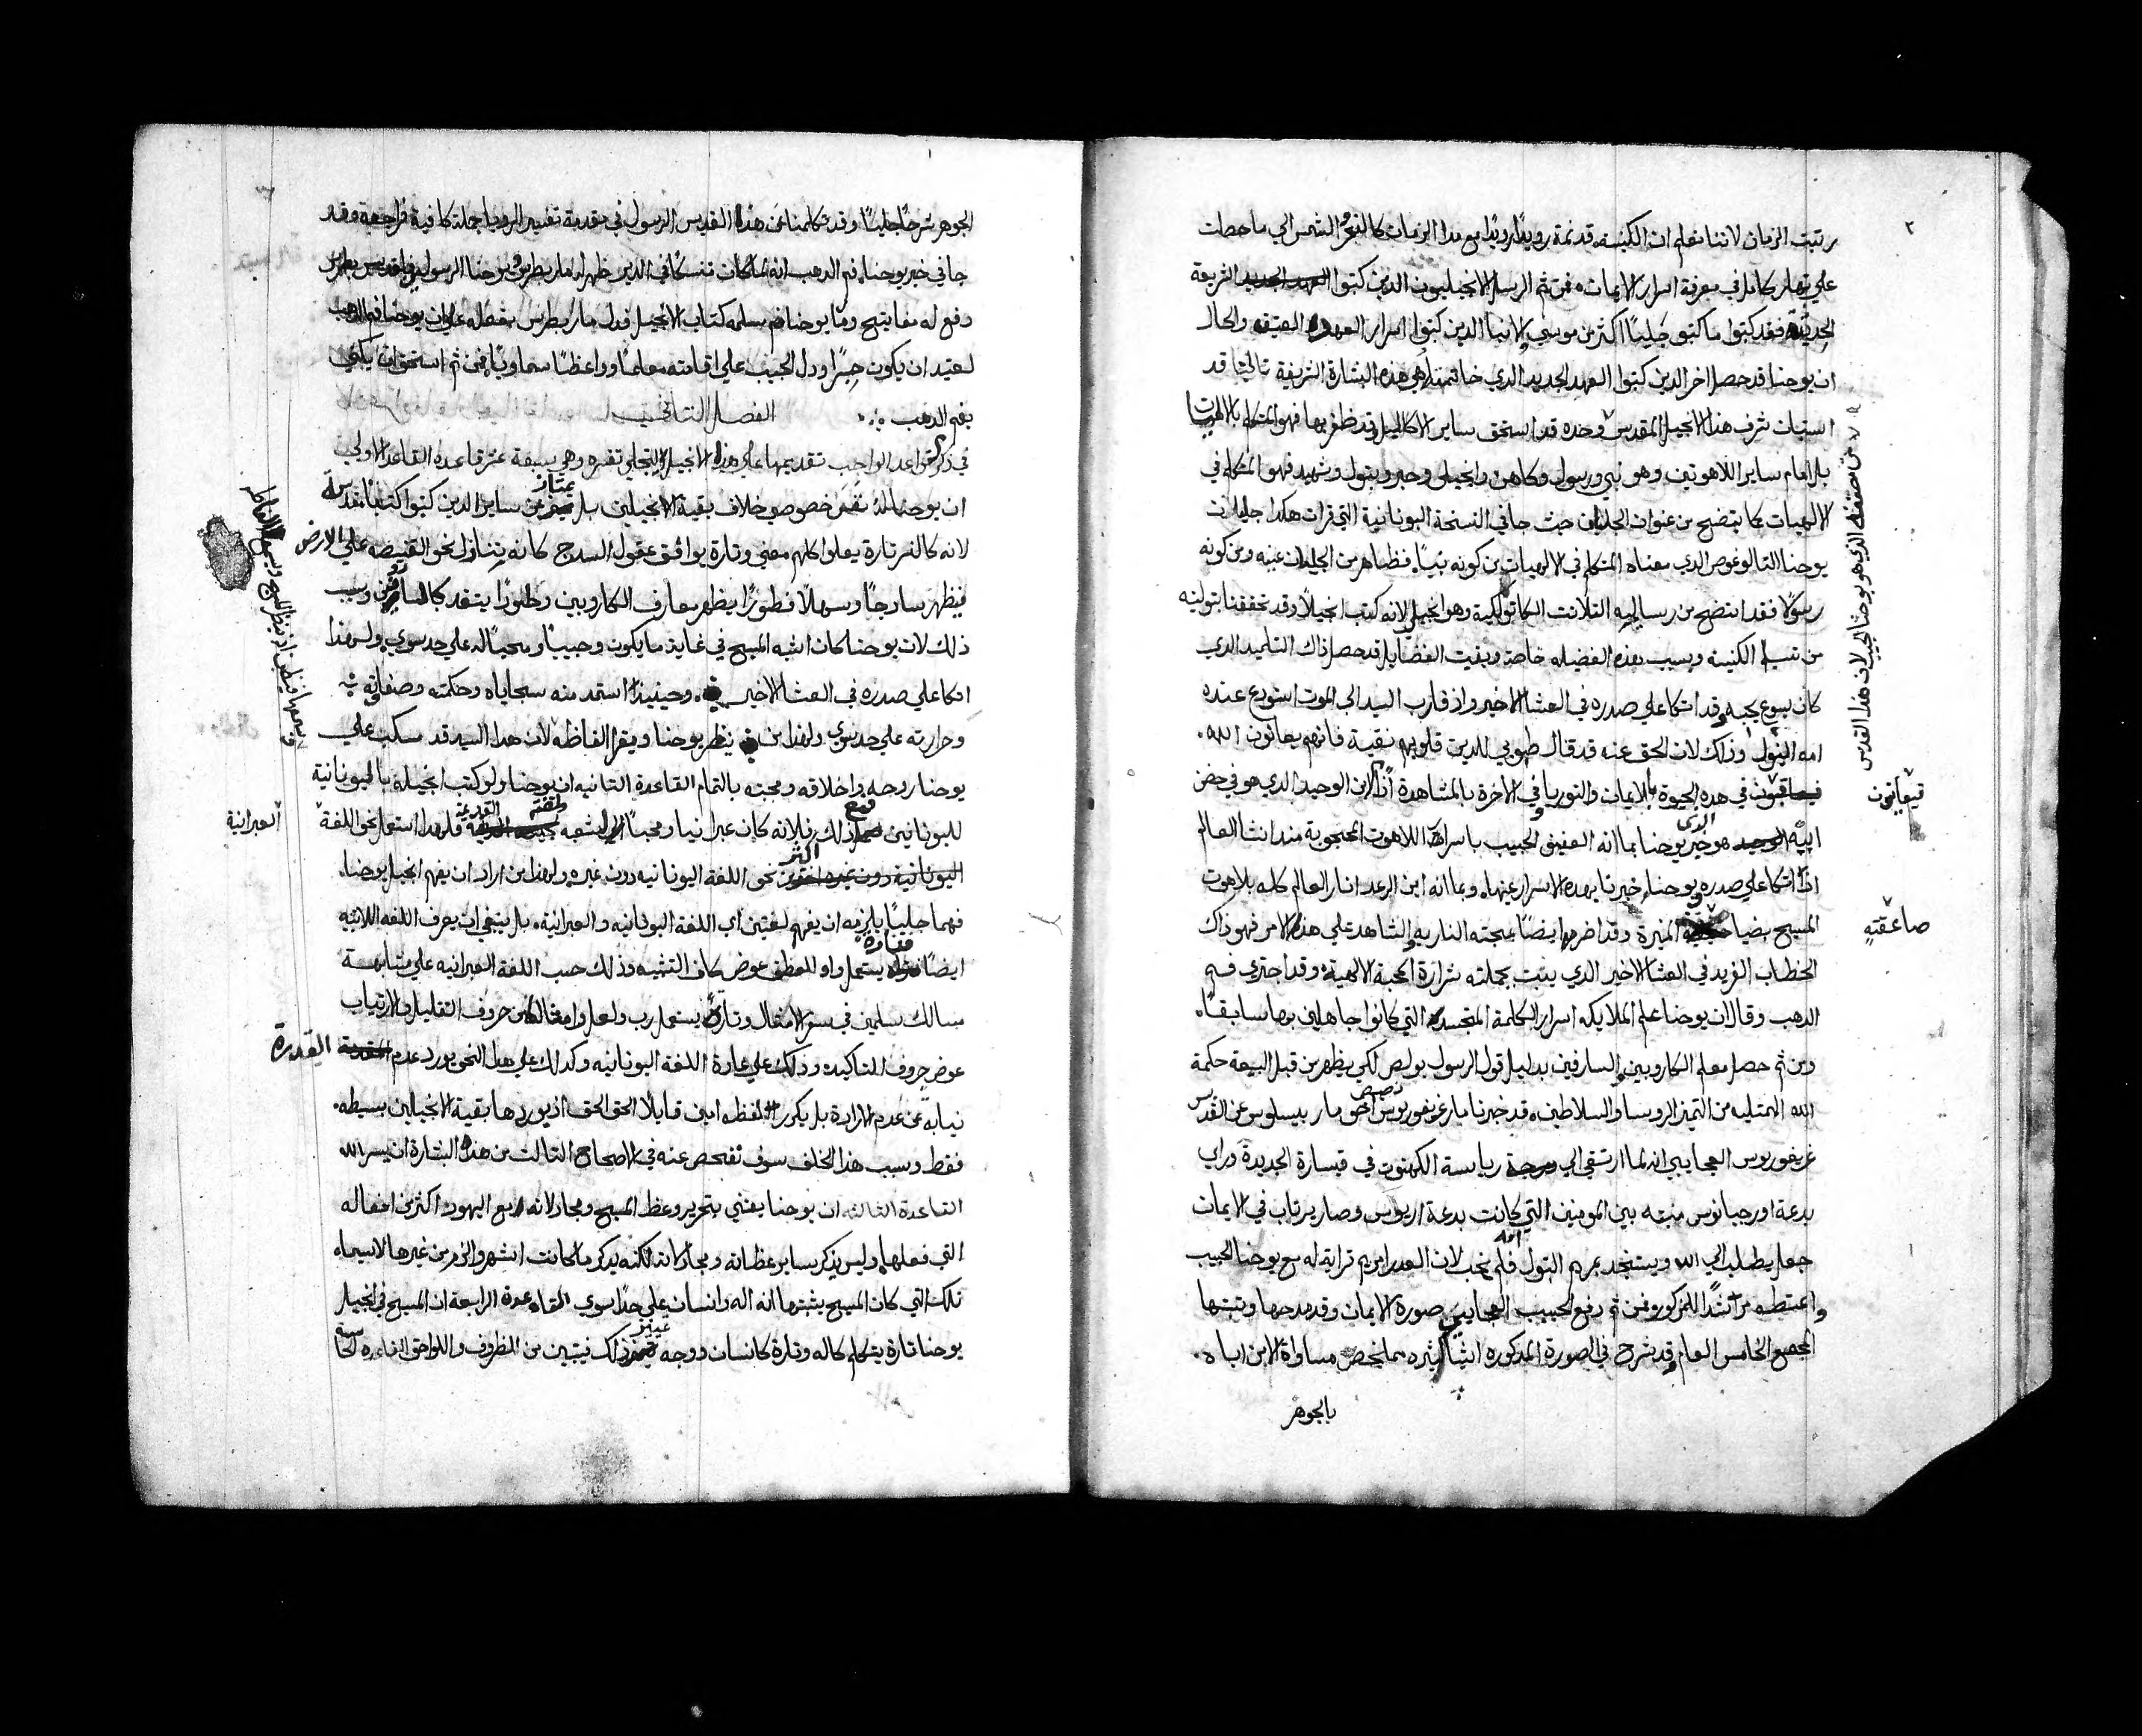 ٢
رتبت الزمان لاننا نعلم ان الكنيسة قد نمة رويدًا رويدًا مع مدا الزمان كالفجر والشمس الي ما حصلت
علي نهار كامل في معرفة اسرار الايمان فمن ثم الرسل الانجيليون الذين كتبوا العهد الجديد الشريعة
الجديدة فقد كتبوا ما كتبو جليًا اكثر من موسي والانبيا الذين كتبوا اسرار العهد العتيق والحال
ان يوحنا قد حصل اخر الذين كتبوا العهد الجديد الدي خاتمته هي هذه البشارة الشريفة تاليًا قد
استبان شرف هذا الانجيل المقدس وحده قد استحق ساير الاكاليل وقد ظفر بها فهو المتكلم بالالهيات
بل امام ساير اللاهوتيين وهو نبي ورسول وكاهن وانجيلي وحبر وبتول وشهيد فهو المتكلم في
الالهيات كما يتضح من عنوان الجليان حيث جا في النسخة اليونانية التي قرات هكذا جليان
يوحنا التالوغوس الدي معناه المتكلم في الالهيات من كونه نبيًا فظاهر من الجليان عينه ومن كونه
رسولًا فقد اتضح من رسايله الثلاثت الكاتوليكية وهو انجيلي لانه كتب انجيلًا وقد تحققنا بتوليته
من تسليم الكنيسة وبسبب هذه الفضيله خاصة وبقيت الفضايل قد حصل ذاك التلميد الدي
كان يسوع يحبه وقد اتكا علي صدره في العشا الاخير واذ قارب السيد الي الموت استودع عنده
امه البتول وذلك لان الحق عنه قد قال طوبي للذين قلوبهم نقية فانهم يعاينون الله
فيعاينون في هذه الحيوة بالايمان والثوريا وفي الاخرة بالمشاهدة اذًا الابن الوحيد الدي هو في حضن
فيعاينون
ابيه الوحيد الذي هو خبر يوحنا بما انه العفيف الحبيب باسرار اللاهوت المحجوبة منذ انشا العالم
اذ اتكا علي صدره ويوحنا خبرنا بهده الاسرار عينها وبما انه ابن الرعد انار العالم كله بلاهوت
المسيح بضيا صاعقته المنيرة وقد اضرمه ايضًا بمحبته الناريه والشاهد علي هذا الامر فهو ذاك
صاعقته
الخطاب الفريد في العشا الاخير الدي ينبت بجملته شرارة المحبة الالهية وقد اجتري فم
الدهب وقال ان يوحنا علم الملايكه اسرار الكلمة المتجسد التي كانوا جاهلين بها سابقًا
ومن ثم حصل معلم الكاروبين والسارافين بدليل قول الرسول بولص لكي يظهر من قبل البيعة حكمة
الله الممتليه من التميز للروسا والسلاطين قد خبرنا مار غريغوريوس نصيص اخو مار بيسليوس عن القدس
غريغوريوس العجايبي انه لما ارتقي الي درجة رياسة الكهنوت في قيسارة الجديدة وراي
بدعة اورجيانوس منبته بين المومنين التي كانت بدعة اريوس وصار يرتاب في الايمان
جعل يطلب الي الله ويستنجد بمريم البتول فلم تخب لان العدرا مريم تراية له مع يوحنا الحبيب
واعتطه مرشدًا المذكور ومن ثم رفع الحبيب العجايبي صورة الايمان وقد مدحها وتبتها
المجمع الخامس العام وقد شرح في الصورة المدكوره اشيا كثيره مما يخص مساواة الابن اباه
بالجوهر
الجوهر شرحًا جليًا وقد تكلمنا عن هذا القديس الرسول في مقدمة تفسير الرويا جملة كافية فراجعه وقد
جا في خبر يوحنا فم الدهب انه لما كان متنسكًا في الدير ظهر له مار بطرس ويوحنا الرسول
دفع له مفاتيح ومار يوحنا سلمه كتاب الانجيل فدل مار بطرس بفعله علي ان يوحنا فم الدهب
لعتيد ان يكون حبرًا ودل الحبيب علي اقامته معلمًا وواعظًا سماويًا فمن ثم استحق ان يكني
بفم الدهب
الفصل الثاني
في ذكر قواعد الواجب تقديمها علي هذا الانجيل لينجلي تفسيره وهي سبعة عشر قاعدة القاعدة الاولي
ان يوحنا له نفس خصوصي خلاف بقية الانجيلين بل يمتاز عن ساير الدين كتبوا كتبًا مقدسة
لانه كالنسر تارة يعلوا كلهم معني وتارة يوافق عقول السدج كانه يتنازل نحو القنيصه علي الارض
فيظهر سادجًا وسهلًا فطورًا يظهر معارف الكاروبين وطورًا يتقد كالسارافين وسبب
ذلك لان يوحنا كان اشبه المسيح في غاية ما يكون وحبيبًا ومحبًا له علي حد سوي ولهذا
اتكا علي صدره في العشا الاخير وحينيذ استمد منه سجاياه وحكمته وصفاته
وحرارته علي حد سوي ولهذا من ينظر يوحنا ويقرا الفاظه لان هدا السيد قد سكب علي
يوحنا روحه واخلاقه ومحبته بالتمام القاعدة الثانيه ان يوحنا ولو كتب انجيله باليونانية
لليونانين فمع ذلك فلانه كان عبرانيا ومحبًا الي شعبه فلهدا استعمل نحو اللغة
العبرانية
اليونانية دون غيره اكثر من نحو اللغة اليونانيه دون غيره ولهذا من اراد ان يفهم انجيل يوحنا
فهما جليًا يلزمه ان يفهم لغتين اي اللغة اليونانيه والعبرانية بل ينبغي ان يعرف اللغه اللاتينيه
ايضًا فتارة يستعمل واو للعطف عوض كاف التشبيه وذلك حسب اللغة العبرانيه علي مشابهة
مسالك سليمن في سفر الامثال وتارة يستعمل رب ولعل وامثالها من حروف التقليل والارتياب
عوض حروف التاكيد وذلك علي عادة اللغة اليونانيه وكدلك علي هدا النحو يورد عدم القدرة
نيابه عن عدم الارادة بل يكرر لفظه امين قايلًا الحق الحق اذ يوردها بقية الانجيلين بسيطه
فقط وسبب هذا الخلف سوف نفحص عنه في الاصحاح الثالث من هذه البشارة ان يسر الله
القاعدة الثالثه ان يوحنا يعتني بتحرير وعظ المسيح ومجادلاته مع اليهود اكثر من افعاله
التي فعلها وليس يذكر ساير عظاته ومجادلاته لكنه يذكر ما كانت اشهر والزم من غيرها لاسيما
تلك التي كان المسيح يثبتها انه اله وانسان علي حدًا سوي القاعدة الرابعة ان المسيح في انجيل
يوحنا تارة يتكلم كاله وتارة كانسان ووجه تمييز ذلك فيتبين من الظروف واللواحق القاعده الخامسة